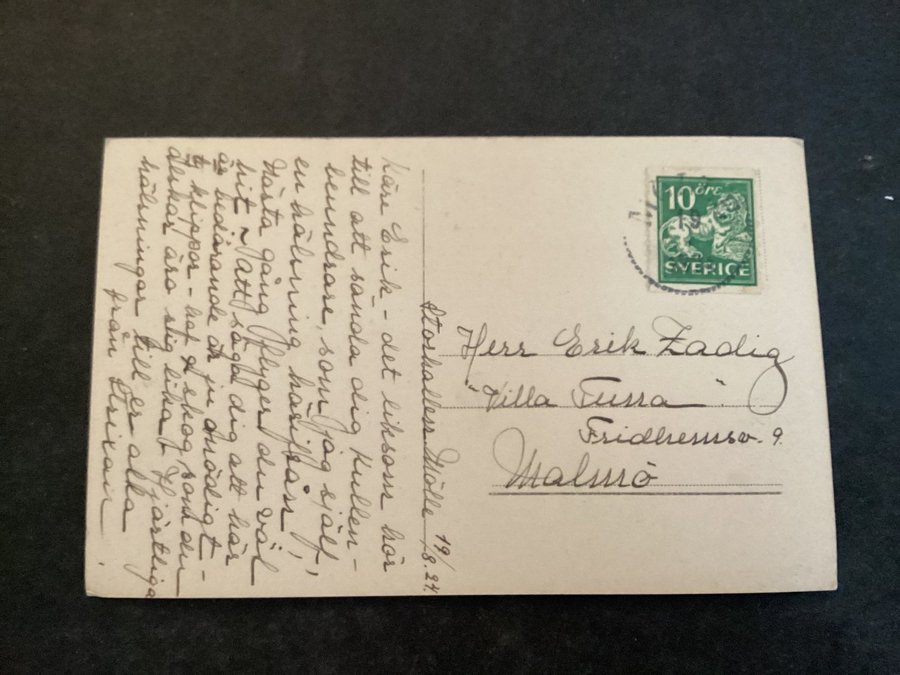 Käre Erik - det liksom hör
till att sända dig, Kullen-
beundrare, som jag själf,
en hälsning härifrån!
Nästa gång flyger du väl
hit - Jatt säga dig att här
är bedårande är ju onödigt -
ty klippor - haf & skog som du
älskar äro sig lika! Hjärtliga
hälsningar till er alla
från
Storhallen Mölle 19/8.24.
10 öre
SVERIGE
Herr Erik Zadig
"Villa Tussa".
Fridhemsv. 9.
Malmö